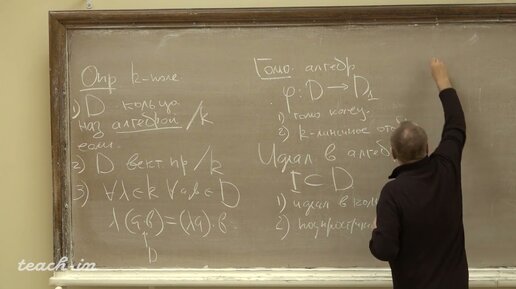 Опр k-поле
1) D - кольцо
наз алгеброй /k
если
2) D вект. пр /k
3) ∀λ∈k ∀a,b∈D
λ(a·b)=(λa)·b
D
Гомо. алгебр
φ: D → D₁
1) гомо колец.
2) k-линейное отоб
Идеал в алгеб
I ⊂ D
1) идеал в коль
2) подпростра
teach-in